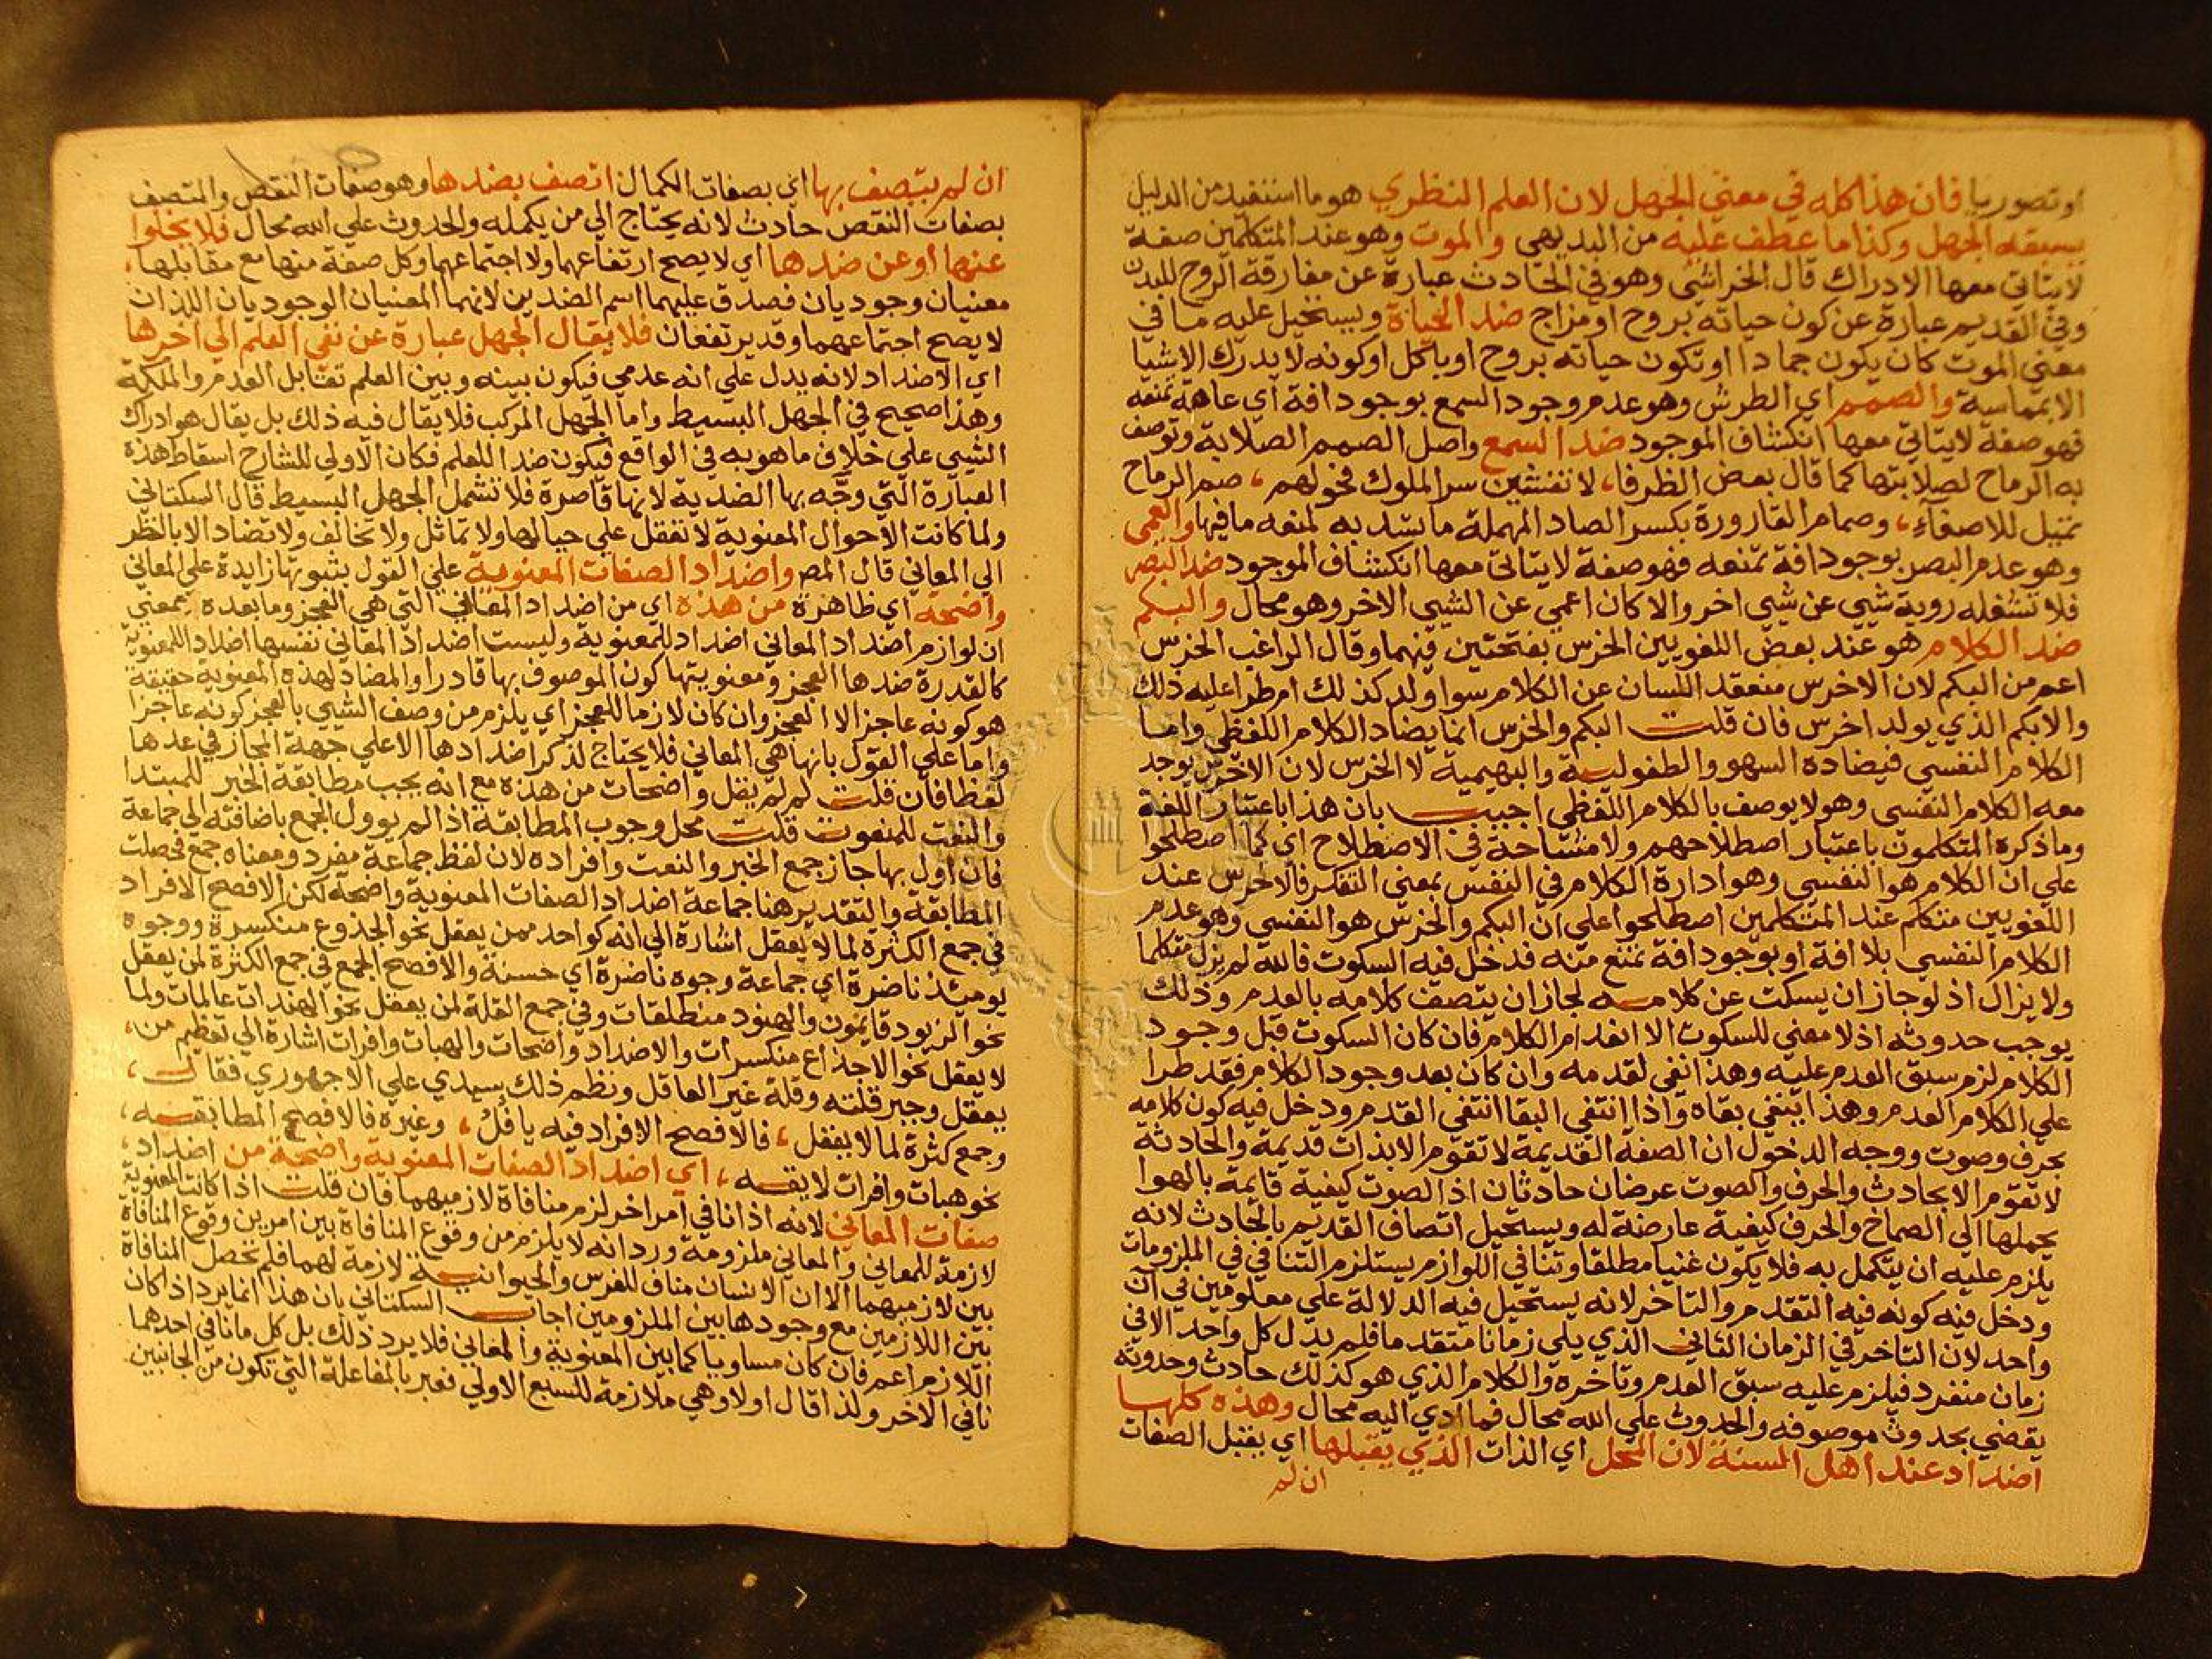 او تصوريا فان هذا كله في معني الجهل لان العلم النظري هو ما استفيد من الدليل
يسبقه الجهل وكذا ما عطف عليه من البديهي والموت وهو عند المتكلمين صفة
لا يتاتي معها الادراك قال الخراشي وهو في الحادث عبارة عن مفارقة الروح للبدن
وفي القديم عبارة عن كون حياته بروح او مزاج ضد الحياة ويستحيل عليه ما في
معني الموت كان يكون جمادا او تكون حياته بروح او ياكل او كونه لا يدرك الاشيا
الا بمماسة والصمم اي الطرش وهو عدم وجود السمع بوجود افة اي عاهة تمنعه
فهو صفة لا يتاتي معها انكشاف الموجود ضد السمع واصل الصمم الصلابة وتوصف
به الرماح لصلابتها كما قال بعض الظرفا، لا تفشين سر الملوك فحولهم، صم الرماح
تميل للاصغاء، وصمام القارورة بكسر الصاد المهملة ما تسد به لمنعه ما فيها والعمي
وهو عدم البصر بوجود افة تمنعه فهو صفة لا يتاتي معها انكشاف الموجود ضد البصر
فلا تشغله روية شيي عن شيي اخر والا كان اعمي عن الشيي الاخر وهو محال والبكم
ضد الكلام هو عند بعض اللغويين الخرس بفتحتين فيهما وقال الراغب الخرس
اعم من البكم لان الاخرس منعقد اللسان عن الكلام سوا ولد كذلك ام طرا عليه ذلك
والابكم الذي يولد اخرس فان قلت البكم والخرس انما يضاد الكلام اللفظي واما
الكلام النفسي فيضاده السهو والطفولية والبهيمية لا الخرس لان الاخرس يوجد
معه الكلام النفسي وهو لا يوصف بالكلام اللفظي اجيب بان هذا باعتبار اللغة
وما ذكره المتكلمون باعتبار اصطلاحهم ولا مشاحة في الاصطلاح اي كما اصطلحوا
علي ان الكلام هو النفسي وهو ادارة الكلام في النفس بمعني التفكر فالاخرس عند
اللغويين متكلم عند المتكلمين اصطلحوا علي ان البكم والخرس هو النفسي وهو عدم
الكلام النفسي بلا افة او بوجود افة تمنع منه فدخل فيه السكوت فالله لم يزل متكلما
ولا يزال اذ لو جاز ان يسكت عن كلامه لجاز ان يتصف كلامه بالعدم وذلك
يوجب حدوثه اذ لا معني للسكوت الا انعدام الكلام فان كان السكوت قبل وجود
الكلام لزم سبق العدم عليه وهذا نفي لقدمه وان كان بعد وجود الكلام فقد طرا
علي الكلام العدم وهذا ينفي بقاه واذا انتفي البقا انتفي القدم ودخل فيه كون كلامه
بحرف وصوت ووجه الدخول ان الصفة القديمة لا تقوم الا بذات قديمة والحادثة
لا تقوم الا بحادث والحرف والصوت عرضان حادثان اذ الصوت كيفية قايمة بالهوا
يحملها الي الصماخ والحرف كيفية عارضة له ويستحيل اتصاف القديم بالحادث لانه
يلزم عليه ان يتكمل به فلا يكون غنيا مطلقا وتنافي اللوازم يستلزم التنافي في الملزومات
ودخل فيه كونه فيه التقدم والتاخر لانه يستحيل فيه الدلالة علي معلومين في ان
واحد لان التاخر في الزمان الثاني الذي يلي زمانا متقدما فلم يدل كل واحد الا في
زمان منفرد فيلزم عليه سبق العدم وتاخره والكلام الذي هو كذلك حادث وحدوثه
يقضي بحدوث موصوفه والحدوث علي الله محال فما ادي اليه محال وهذه كلها
اضداد عند اهل السنة لان المحل اي الذات الذي يقبلها اي يقبل الصفات
ان لم
ان لم يتصف بها اي بصفات الكمال اتصف بضدها وهو صفات النقص والمتصف
بصفات النقص حادث لانه يحتاج الي من يكمله والحدوث علي الله محال فلا يخلوا
عنها او عن ضدها اي لا يصح ارتفاعهما ولا اجتماعهما وكل صفة منها مع مقابلها،
معنيان وجوديان فصدق عليهما اسم الضدين لانهما المعنيان الوجوديان اللذان
لا يصح اجتماعهما وقد يرتفعان فلا يقال الجهل عبارة عن نفي العلم الي اخرها
اي الاضداد لانه يدل علي انه عدمي فيكون بينه وبين العلم تقابل العدم والملكة
وهذا صحيح في الجهل البسيط واما الجهل المركب فلا يقال فيه ذلك بل يقال هو ادراك
الشيي علي خلاف ما هو به في الواقع فيكون ضدا للعلم فكان الاولي للشارح اسقاط هذه
العبارة التي وجه بها الضدية لانها قاصرة فلا تشمل الجهل البسيط قال السكتاني
ولما كانت الاحوال المعنوية لا تعقل علي حيالها ولا تماثل ولا تخالف ولا تضاد الا بالنظر
الي المعاني قال المص واضداد الصفات المعنوية علي القول بثبوتها زايدة علي المعاني
واضحة اي ظاهرة من هذه اي من اضداد المعاني التي هي العجز وما بعده بمعني
ان لوازم اضداد المعاني اضداد للمعنوية وليست اضداد المعاني نفسها اضداد المعنوية
كالقدرة ضدها العجز ومعنويتها كون الموصوف بها قادرا والمضاد لهذه المعنوية حقيقة
هو كونه عاجزا لا العجز وان كان لازما للعجز اي يلزم من وصف الشيي بالعجز كونه عاجزا
واما علي القول بانها هي المعاني فلا يحتاج لذكر اضدادها الا علي جهة المجاز في عدها
لفظا فان قلت لم لم يقل واضحات من هذه مع انه يجب مطابقة الخبر للمبتدا
والنعت للمنعوت قلت محل وجوب المطابقة اذا لم يوول الجمع باضافته الي جماعة
فان اول بها جاز جمع الخبر والنعت وافراده لان لفظ جماعة مفرد ومعناه جمع فحصلت
المطابقة والتقدير هنا جماعة اضداد الصفات المعنوية واضحة لكن الافصح الافراد
في جمع الكثرة لما لا يعقل اشارة الي انه كواحد ممن يعقل نحو الجذوع منكسرة ووجوه
يوميذ ناضرة اي جماعة وجوه ناضرة اي حسنة والافصح الجمع في جمع الكثرة لمن يعقل
نحو الزيود قايمون والهنود منطلقات وفي جمع القلة لمن يعقل نحو الهندات عالمات ولما
لا يعقل نحو الاجذاع منكسرات والاضداد واضحات والهبات وافرات اشارة الي تعظيم من،
يعقل وجبر قلته وقلة غير العاقل ونظم ذلك سيدي علي الاجهوري فقال،
وجمع كثرة لما لا يعقل، فالافصح الافراد فيه يافل، وغيره فالافصح المطابقه،
نحو هبات وافرات لايقه، اي اضداد الصفات المعنوية واضحة من اضداد،
صفات المعاني لانه اذا نافي امر اخر لزم منافاة لازميهما فان قلت اذا كانت المعنوية
لازمة للمعاني والمعاني ملزومة ورد انه لا يلزم من وقوع المنافاة بين امرين وقوع المنافاة
بين لازميهما الا ان الانسان مناف للفرس والحيوانية لازمة لهما فلم تحصل المنافاة
بين اللازمين مع وجودها بين الملزومين اجاب السكتاني بان هذا انما يرد اذا كان
اللازم اعم فان كان مساويا كما بين المعنوية والمعاني فلا يرد ذلك بل كل ما نافي احدهما
نافي الاخر ولذا قال اولا وهي ملازمة للسبع الاولي فعبر بالمفاعلة التي تكون من الجانبين